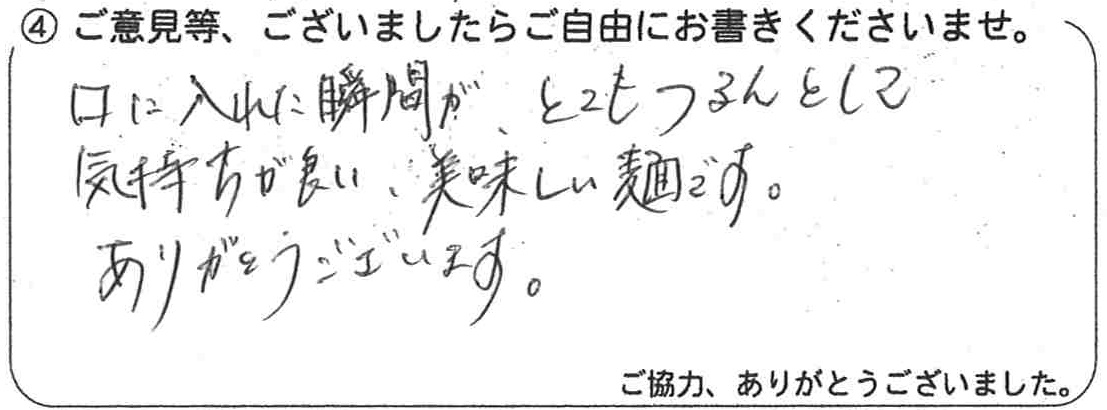 ④ ご意見等、ございましたらご自由にお書きくださいませ。
口に入れた瞬間が、とてもつるんとして
気持ちが良い、美味しい麺です。
ありがとうございます。
ご協力、ありがとうございました。